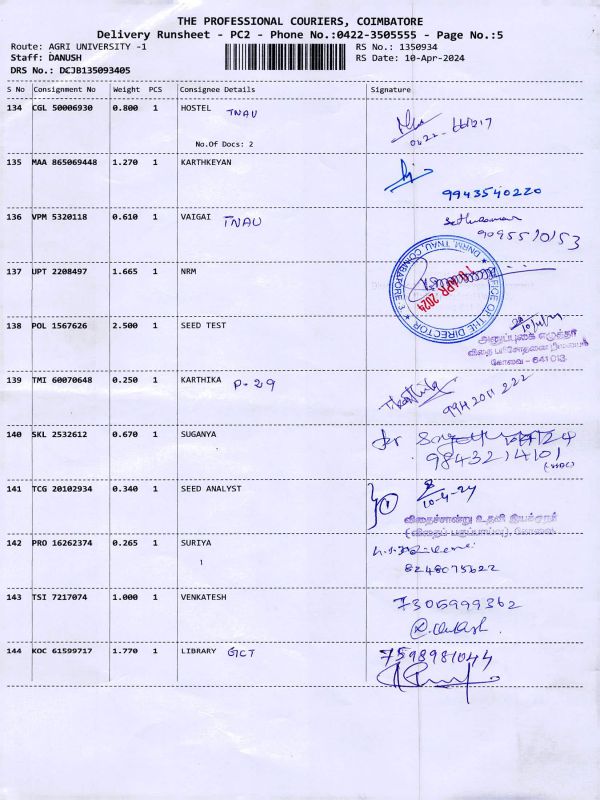 THE PROFESSIONAL COURIERS, COIMBATORE
Delivery Runsheet - PC2 - Phone No.:0422-3505555 - Page No.:5
Route: AGRI UNIVERSITY -1 RS No.: 1350934
Staff: DANUSH RS Date: 10-Apr-2024
DRS No.: DCJB135093405
S No Consignment No Weight PCS Consignee Details Signature
134 CGL 50006930 0.800 1 HOSTEL TNAU
No.Of Docs: 2
135 MAA 865069448 1.270 1 KARTHKEYAN
9943540220
136 VPM 5320118 0.610 1 VAIGAI TNAU
9095510153
137 UPT 2208497 1.665 1 NRM
OFFICE OF THE DIRECTOR * DNRM, TNAU, COIMBATORE - 3 *
APR 2024
138 POL 1567626 2.500 1 SEED TEST
கோவை - 641 013
139 TMI 60070648 0.250 1 KARTHIKA P-29
Karthika
140 SKL 2532612 0.670 1 SUGANYA
9843214101
141 TCG 20102934 0.340 1 SEED ANALYST
10-4-24
விதைச்சான்று உதவி இயக்குநர்
142 PRO 16262374 0.265 1 SURIYA
1
8248075622
143 TSI 7217074 1.000 1 VENKATESH 7305999362
144 KOC 61599717 1.770 1 LIBRARY GICT 7598981044